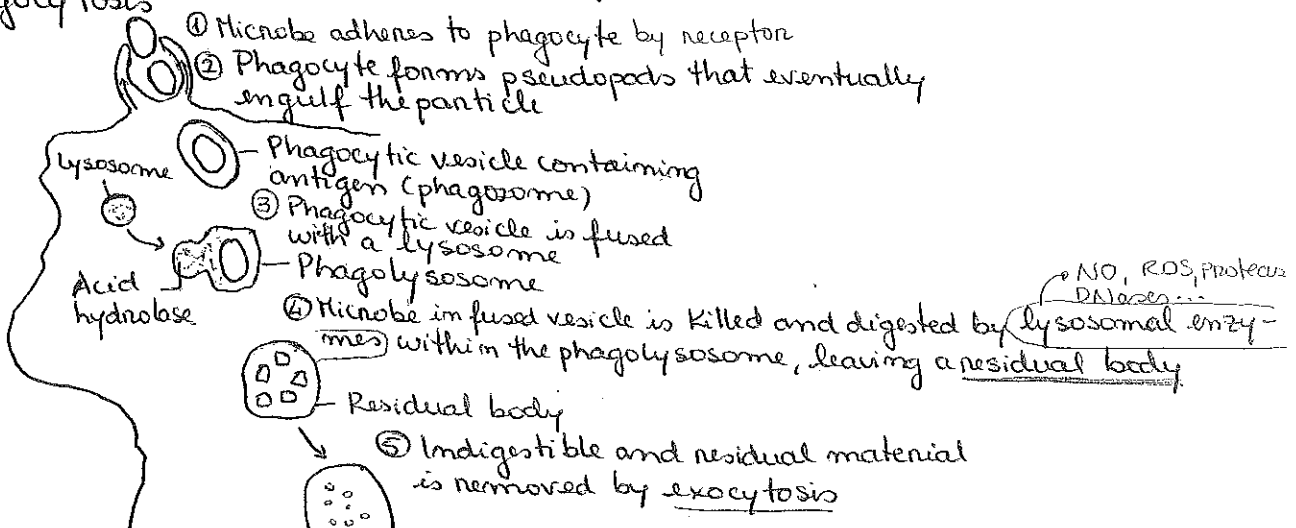 ① Microbe adheres to phagocyte by receptor
② Phagocyte forms pseudopods that eventually
engulf the particle
Lysosome
Phagocytic vesicle containing
antigen (phagosome)
③ Phagocytic vesicle is fused
with a lysosome
Phagolysosome
Acid
hydrolase
NO, ROS, Proteases
DNases...
④ Microbe in fused vesicle is killed and digested by lysosomal enzy-
mes within the phagolysosome, leaving a residual body
Residual body
⑤ Indigestible and residual material
is removed by exocytosis